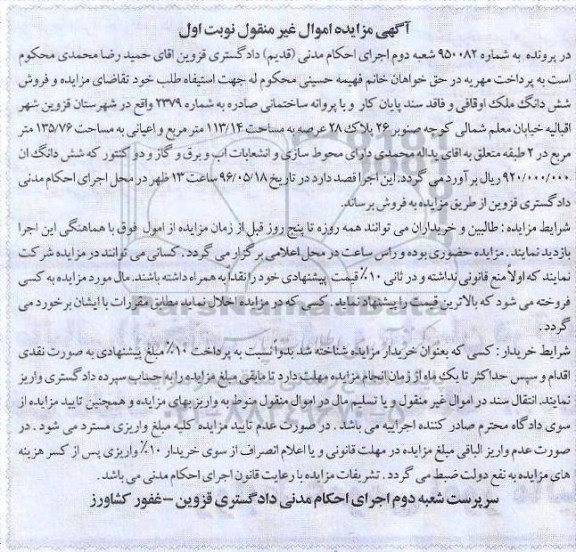 آگهی مزایده اموال غیر منقول نوبت اول
در پرونده به شماره ۹۵۰۰۸۲ شعبه دوم اجرای احکام مدنی (قدیم) دادگستری قزوین آقای حمید رضا محمدی محکوم
است به پرداخت مهریه در حق خواهان خانم فهیمه حسینی محکوم له جهت استیفاء طلب خود تقاضای مزایده و فروش
شش دانگ ملک اوقافی و فاقد سند پایان کار و با پروانه ساختمانی صادره به شماره ۲۳۷۹ واقع در شهرستان قزوین شهر
اقبالیه خیابان معلم شمالی کوچه صنوبر ۲۶ پلاک ۲۸ عرصه به مساحت ۱۱۳/۱۴ متر مربع و اعیانی به مساحت ۱۳۵/۷۶ متر
مربع در ۲ طبقه متعلق به اقای یداله محمدی دارای محوط سازی و انشعابات اب و برق و گاز و دو کنتور که شش دانگ ان
۹۲۰/۰۰۰/۰۰۰ ریال بر آورد می گردد. این اجرا قصد دارد در تاریخ ۹۶/۰۵/۱۸ ساعت ۱۳ ظهر در محل اجرای احکام مدنی
دادگستری قزوین از طریق مزایده به فروش برساند.
شرایط مزایده : طالبین و خریداران می توانند همه روزه تا پنج روز قبل از زمان مزایده از اموال فوق با هماهنگی این اجرا
بازدید نمایند . مزایده حضوری بوده و راس ساعت در محل اعلامی برگزار می گردد . کسانی می توانند در مزایده شرکت
نمایند که اولاً منع قانونی نداشته و در ثانی ۱۰٪ قیمت پیشنهادی خود را نقدا به همراه داشته باشند. مال مورد مزایده به کسی
فروخته می شود که بالاترین قیمت را پیشنهاد نماید . کسی که در مزایده اخلال نماید مطابق مقررات با ایشان برخورد می
گردد .
شرایط خریدار : کسی که بعنوان خریدار مزایده شناخته شد بدواً نسبت به پرداخت ۱۰٪ مبلغ پیشنهادی به صورت نقدی
اقدام و سپس حداکثر تا یک ماه از زمان انجام مزایده مهلت دارد تا مابقی مبلغ مزایده را به حساب سپرده دادگستری واریز
نمایند. انتقال سند در اموال غیر منقول و یا تسلیم مال در اموال منقول منوط به واریز بهای مزایده و همچنین تایید مزایده از
سوی دادگاه محترم صادر کننده اجراییه می باشد . در صورت عدم تایید مزایده کلیه مبلغ واریزی مسترد می شود . در
صورت عدم واریز الباقی مبلغ مزایده در مهلت قانونی و یا اعلام انصراف از سوی خریدار ۱۰٪ واریزی پس از کسر هزینه
های مزایده به نفع دولت ضبط می گردد . تشریفات مزایده با رعایت قانون اجرای احکام مدنی می باشد .
سرپرست شعبه دوم اجرای احکام مدنی دادگستری قزوین – غفور کشاورز
ParsNamadData
۰۲۱-۸۸۳۴۹۶۷۰-۵